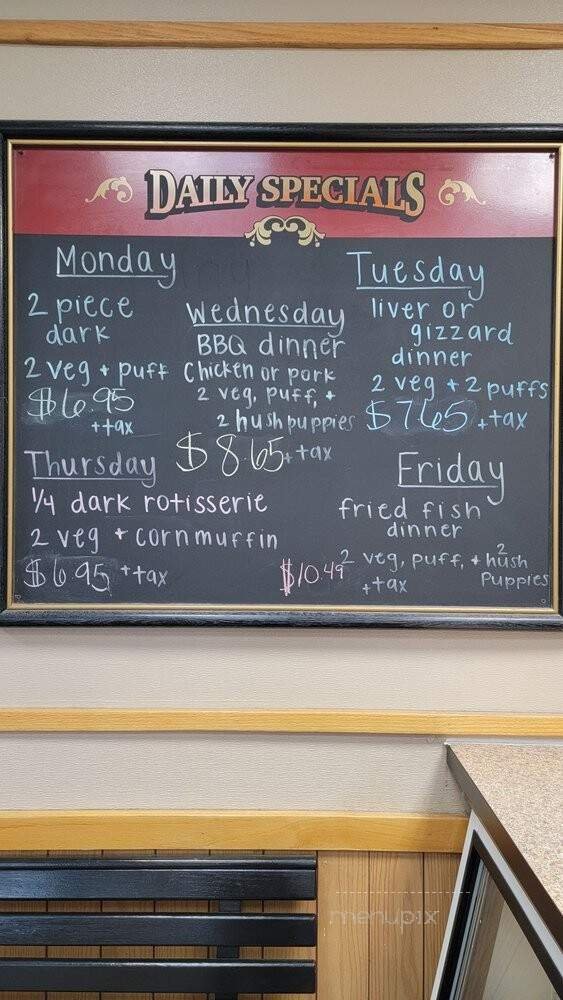 DAILY SPECIALS
Monday
2 piece
dark
2 veg + puff
$6.95
+tax
Tuesday
liver or
gizzard
dinner
2 veg + 2 puffs
$7.65 +tax
Wednesday
BBQ dinner
Chicken or pork
2 veg, puff, +
2 hushpuppies
$8.65 +tax
Thursday
1/4 dark rotisserie
2 veg + cornmuffin
$6.95 +tax
Friday
fried fish
dinner
2 veg, puff, + 2 hush
puppies
$10.49 +tax
menupix